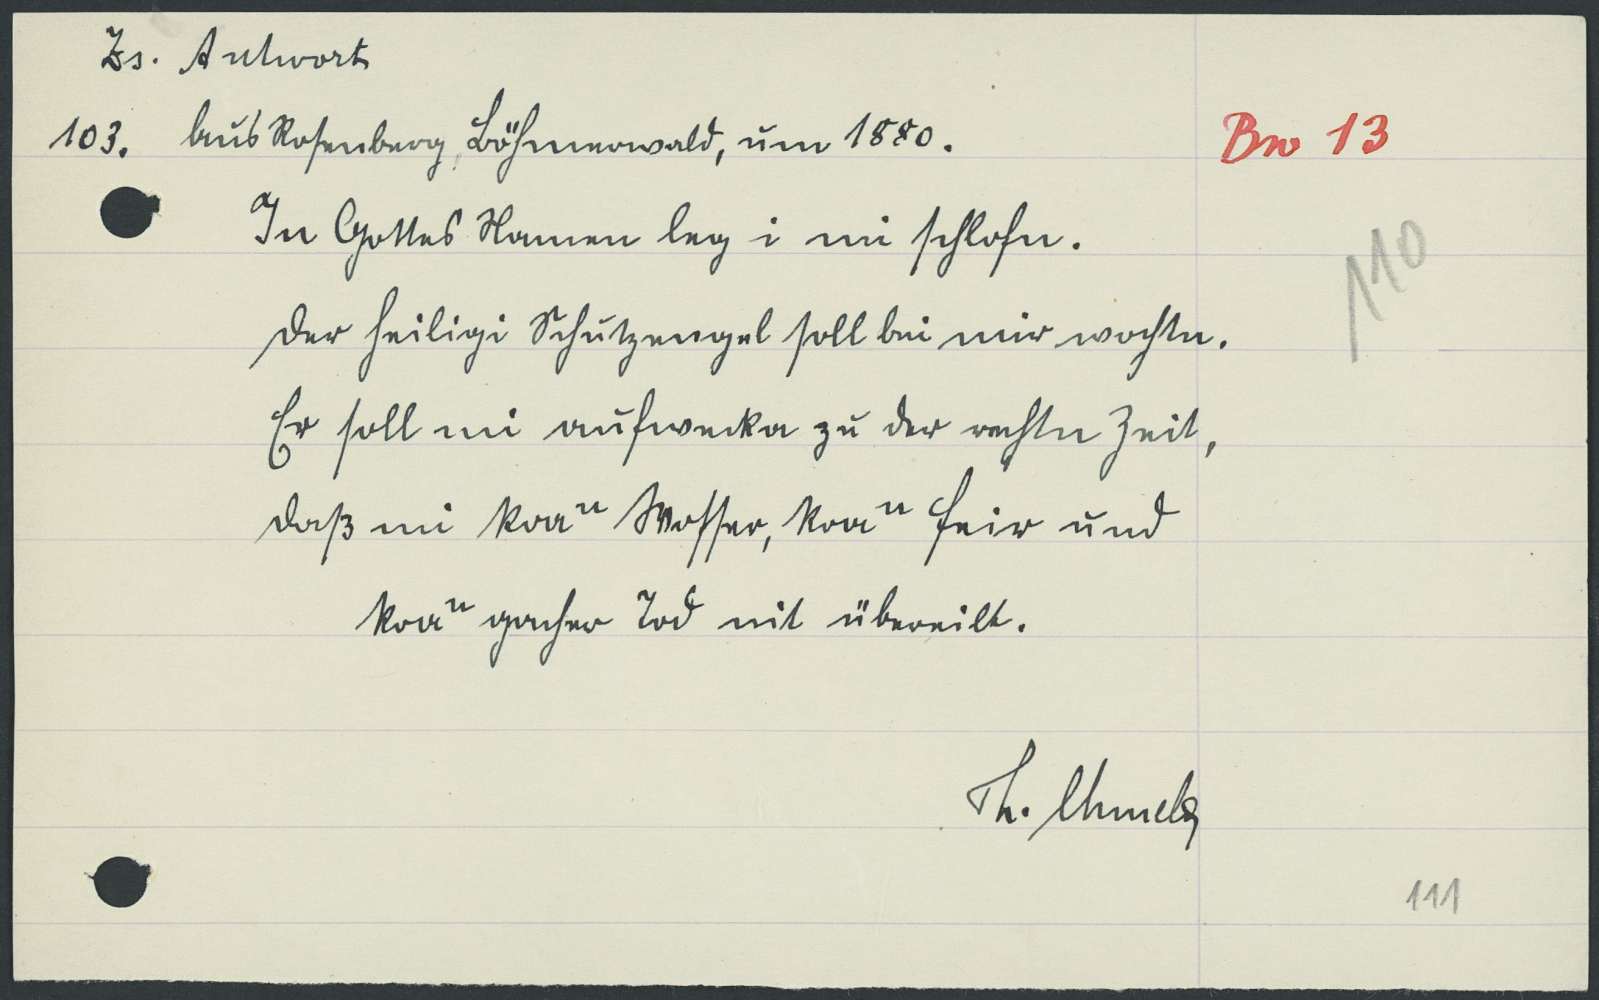 Zs. Antwort
103. Aus Rosenberg, Böhmerwald, um 1880.
Bw 13
In Gottes Namen leg i mi schlofn.
110
Der heiligi Schutzengel soll bei mir wochtn.
Er soll mi aufwecka zu der rechtn Zeit,
daß mi koaⁿ Wosser, koaⁿ Feir und
koaⁿ gacher Tod nit übereilt.
Th. Chmela
111